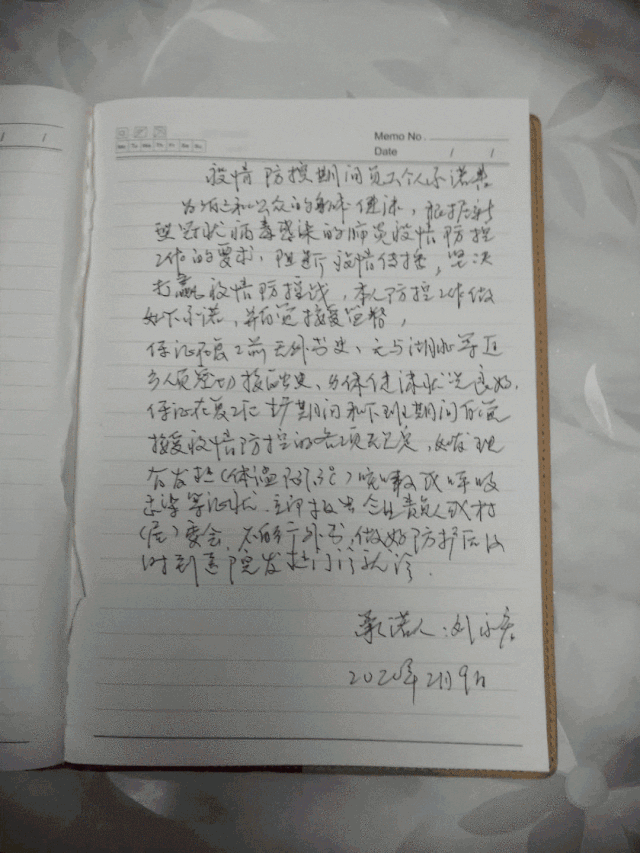 Mo Tu We Th Fr Sa Su
Memo No.
Date / /
疫情防控期间员工个人承诺书
为了自己和公众的身体健康，根据新
型冠状病毒感染的肺炎疫情防控
工作的要求，阻断疫情传播，坚决
打赢疫情防控战，本人防控工作做
如下承诺，并自觉接受监督，
保证在复工前无外出史，无与湖北等返
乡人员密切接触史，身体健康状况良好，
保证在复工上班期间和下班期间自觉
接受疫情防控的各项规定，如发现
有发热（体温）咳嗽或呼吸
等症状，立即报告企业负责人或村
（居）委会，不自行外出，做好防护后及
时到医院发热门诊就诊．
承诺人：刘永
2020年2月9日